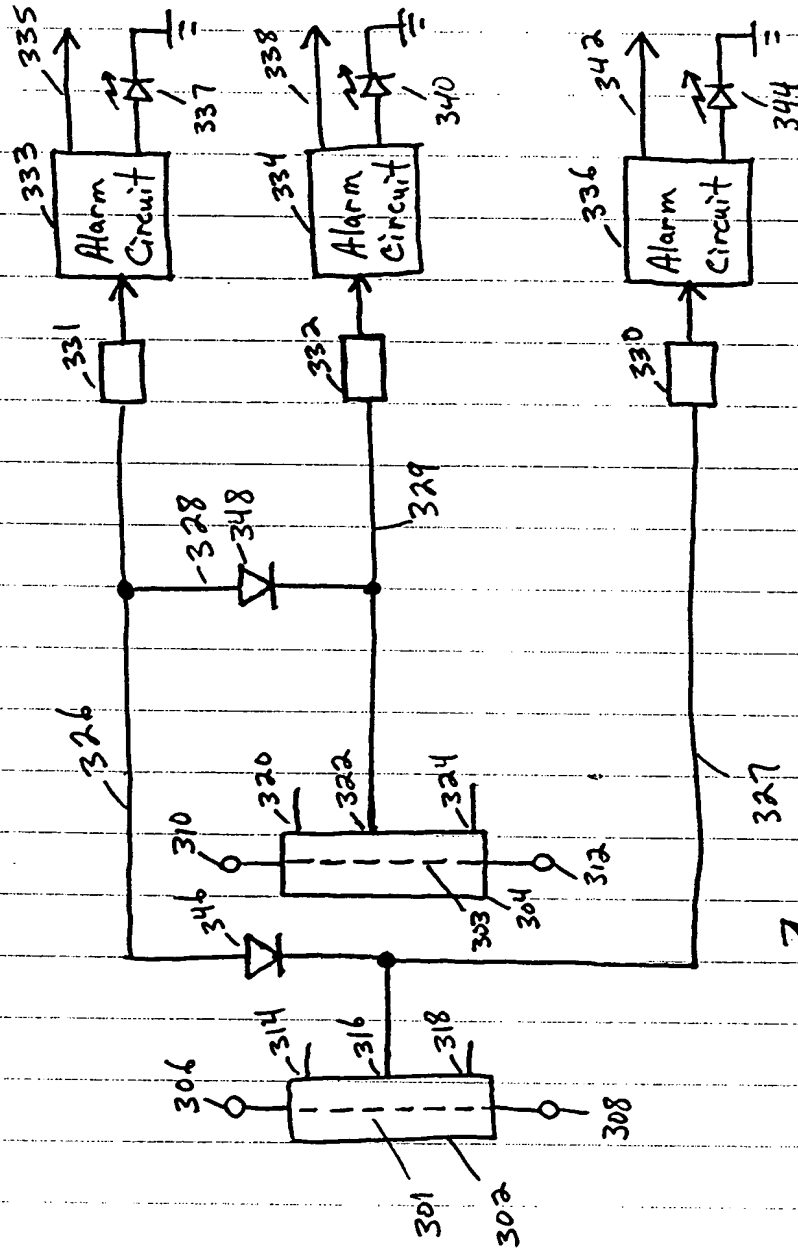 335
333
Alarm
Circuit
337
331
338
334
Alarm
Circuit
340
332
342
336
Alarm
Circuit
344
330
328
348
329
326
327
310
320
322
324
312
303
304
346
306
314
316
318
308
301
302